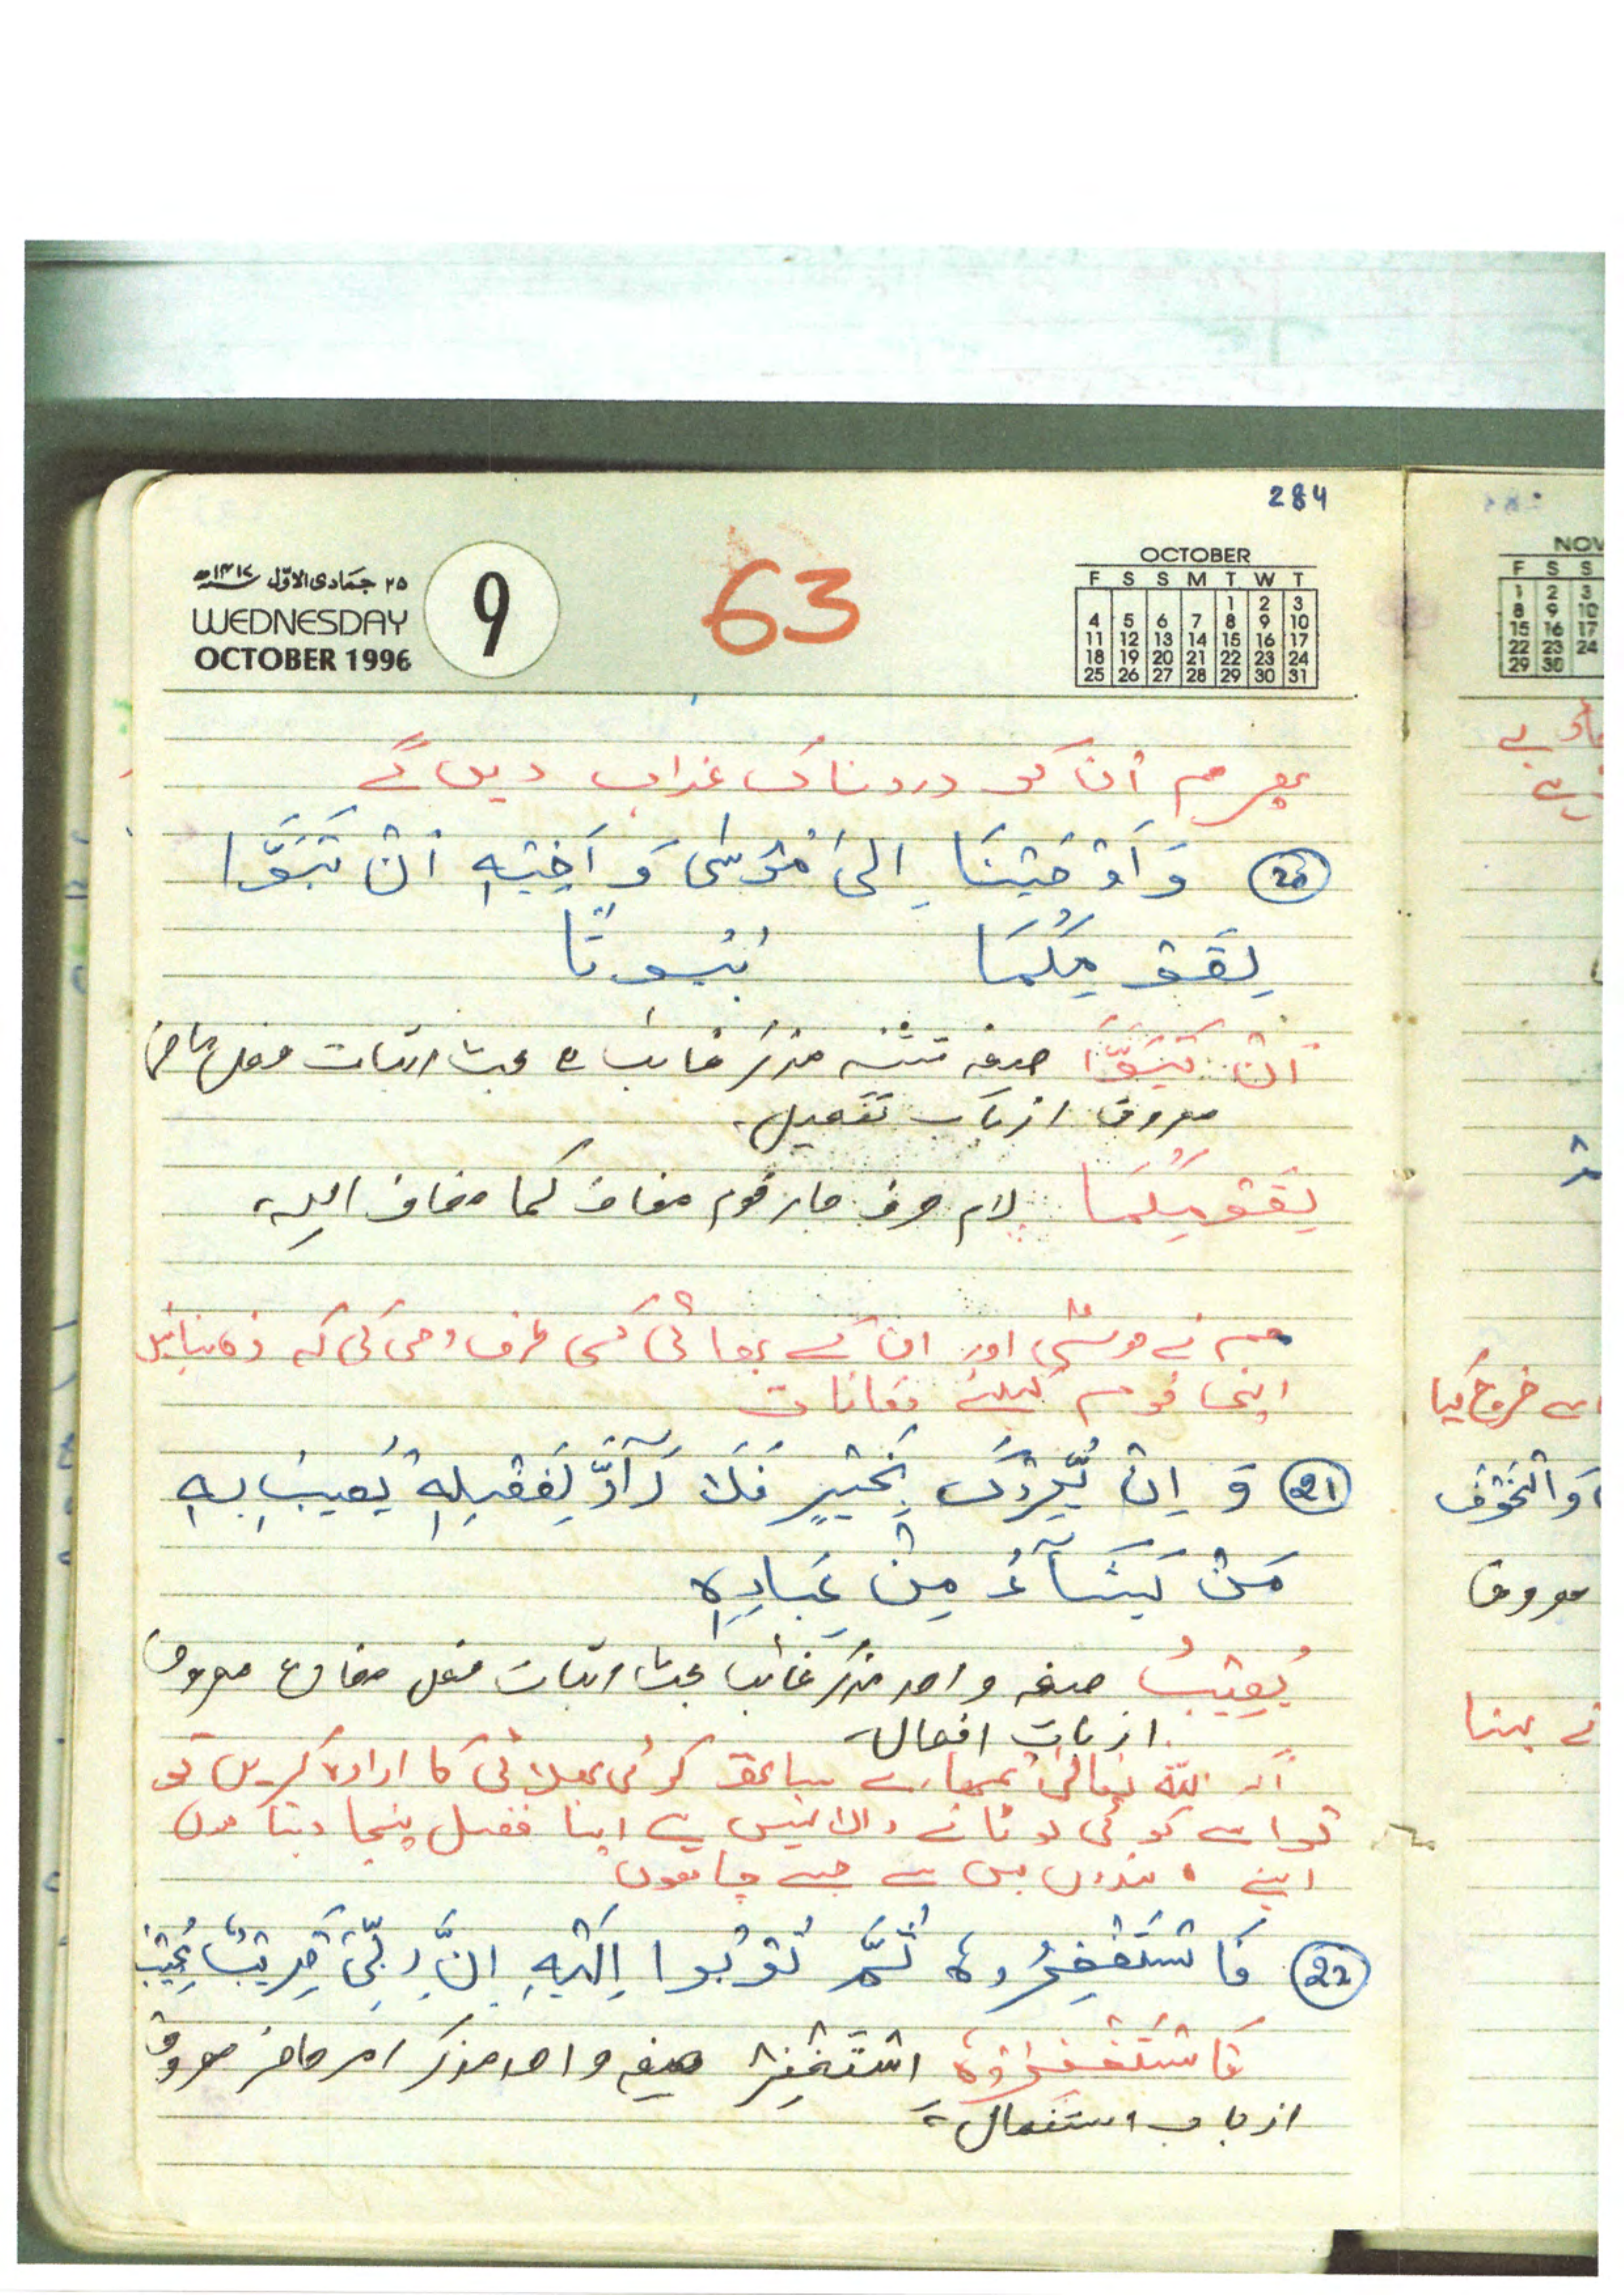 284
۲۵ جمادی الاوّل ۱۴۱۷ھ
WEDNESDAY
OCTOBER 1996
9
63
OCTOBER
F S S M T W T
1 2 3
4 5 6 7 8 9 10
11 12 13 14 15 16 17
18 19 20 21 22 23 24
25 26 27 28 29 30 31
پھر ہم ان کو دردناک عذاب دیں گے
(20) وَ اَوْحَيْنَا اِلىٰ مُوْسٰى وَ اَخِيْهِ اَنْ تَبَوَّا
لِقَوْمِكُمَا بُيُوتًا
اَنْ تَبَوَّا صیغہ تثنیہ مذکر غائب بحث اثبات فعل ماضی
معروف از باب تفعیل۔
لِقَوْمِكُمَا لام حرف جار قوم مضاف کما مضاف الیہ،
ہم نے موسٰی اور ان کے بھائی کی طرف وحی کی کہ بنائیں
اپنی قوم کیلئے مکانات
(21) وَ اِنْ يُّرِدْكَ بِخَيْرٍ فَلَا رَآدَّ لِفَضْلِهٖ يُصِيْبُ بِهٖ
مَنْ يَشَآءُ مِنْ عِبَادِهٖ
يُصِيْبُ صیغہ واحد مذکر غائب بحث اثبات فعل مضارع معروف
از باب افعال۔
اگر اللہ تعالٰی تمھارے ساتھ کوئی بھلائی کا ارادہ کریں تو
تو اسے کوئی لوٹانے والا نہیں ہے اپنا فضل پہنچا دیتا ہوں
اپنے بندوں میں سے جسے چاہوں
(22) فَاسْتَغْفِرُوهُ ثُمَّ تُوْبُوا اِلَيْهِ اِنَّ رَبِّىْ قَرِيْبٌ مُّجِيْبٌ
فَاسْتَغْفِرُوْهُ اِسْتَغْفِرْ صیغہ واحد مذکر امر حاضر معروف
از باب استفعال۔
NOV
F S S
1 2 3
8 9 10
15 16 17
22 23 24
29 30
سے خروج کیا
وَ الْخَوْف
معروف
نے بہنا